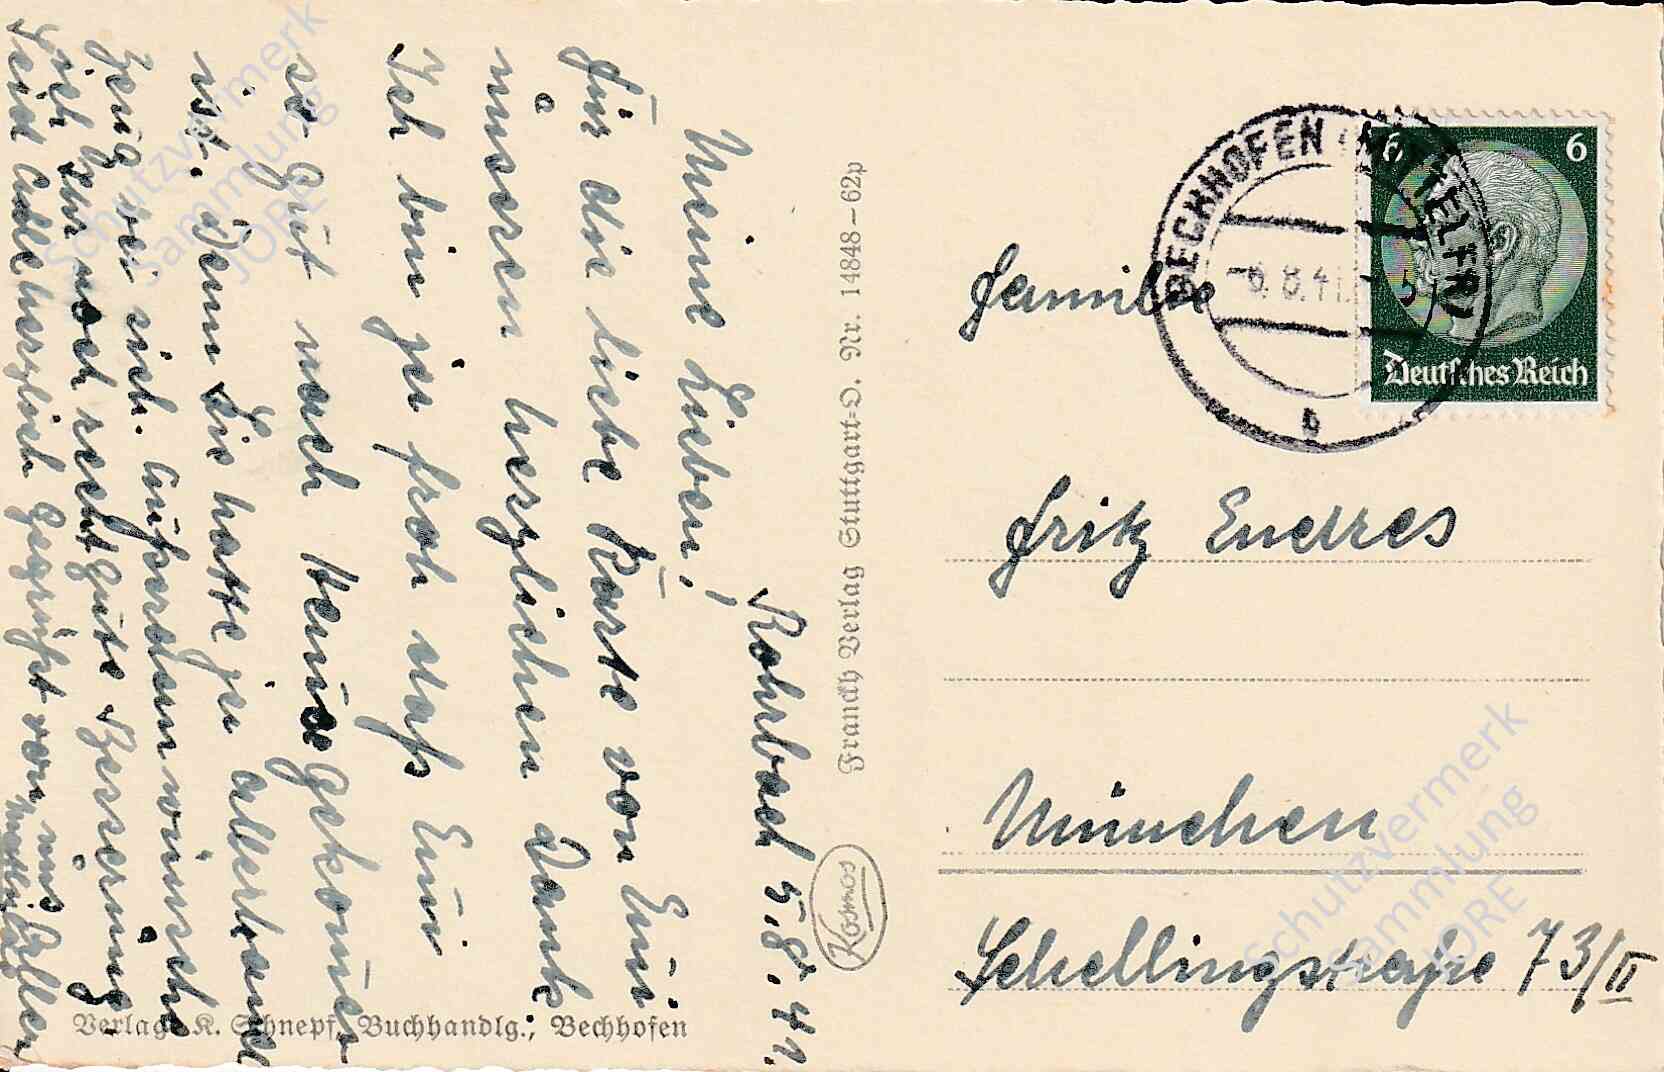 Rohrbach 5.8.41.
Meine Lieben!
Für die liebe Karte von Euch
unseren herzlichen Dank
Ich bin ja froh daß Euer
so gut nach hause gekommen
ist. Denn Sie hatte ja allerhand
Zeug bei sich. Außerdem wünsche
ich Ihr noch recht gute Besserung
Seid Alle herzlich gegrüßt von uns Allen
Franckh Verlag Stuttgart-O. Nr. 14848-62p
Kosmos
Verlag: K. Schnepf, Buchhandlg., Bechhofen
BECHHOFEN (MITTELFR)
-6.8.41.
b
6 6
Deutsches Reich
Familie
Fritz Endres
München
Schellingstraße 73/II
Schutzvermerk
Sammlung
JORE
Schutzvermerk
Sammlung
JORE